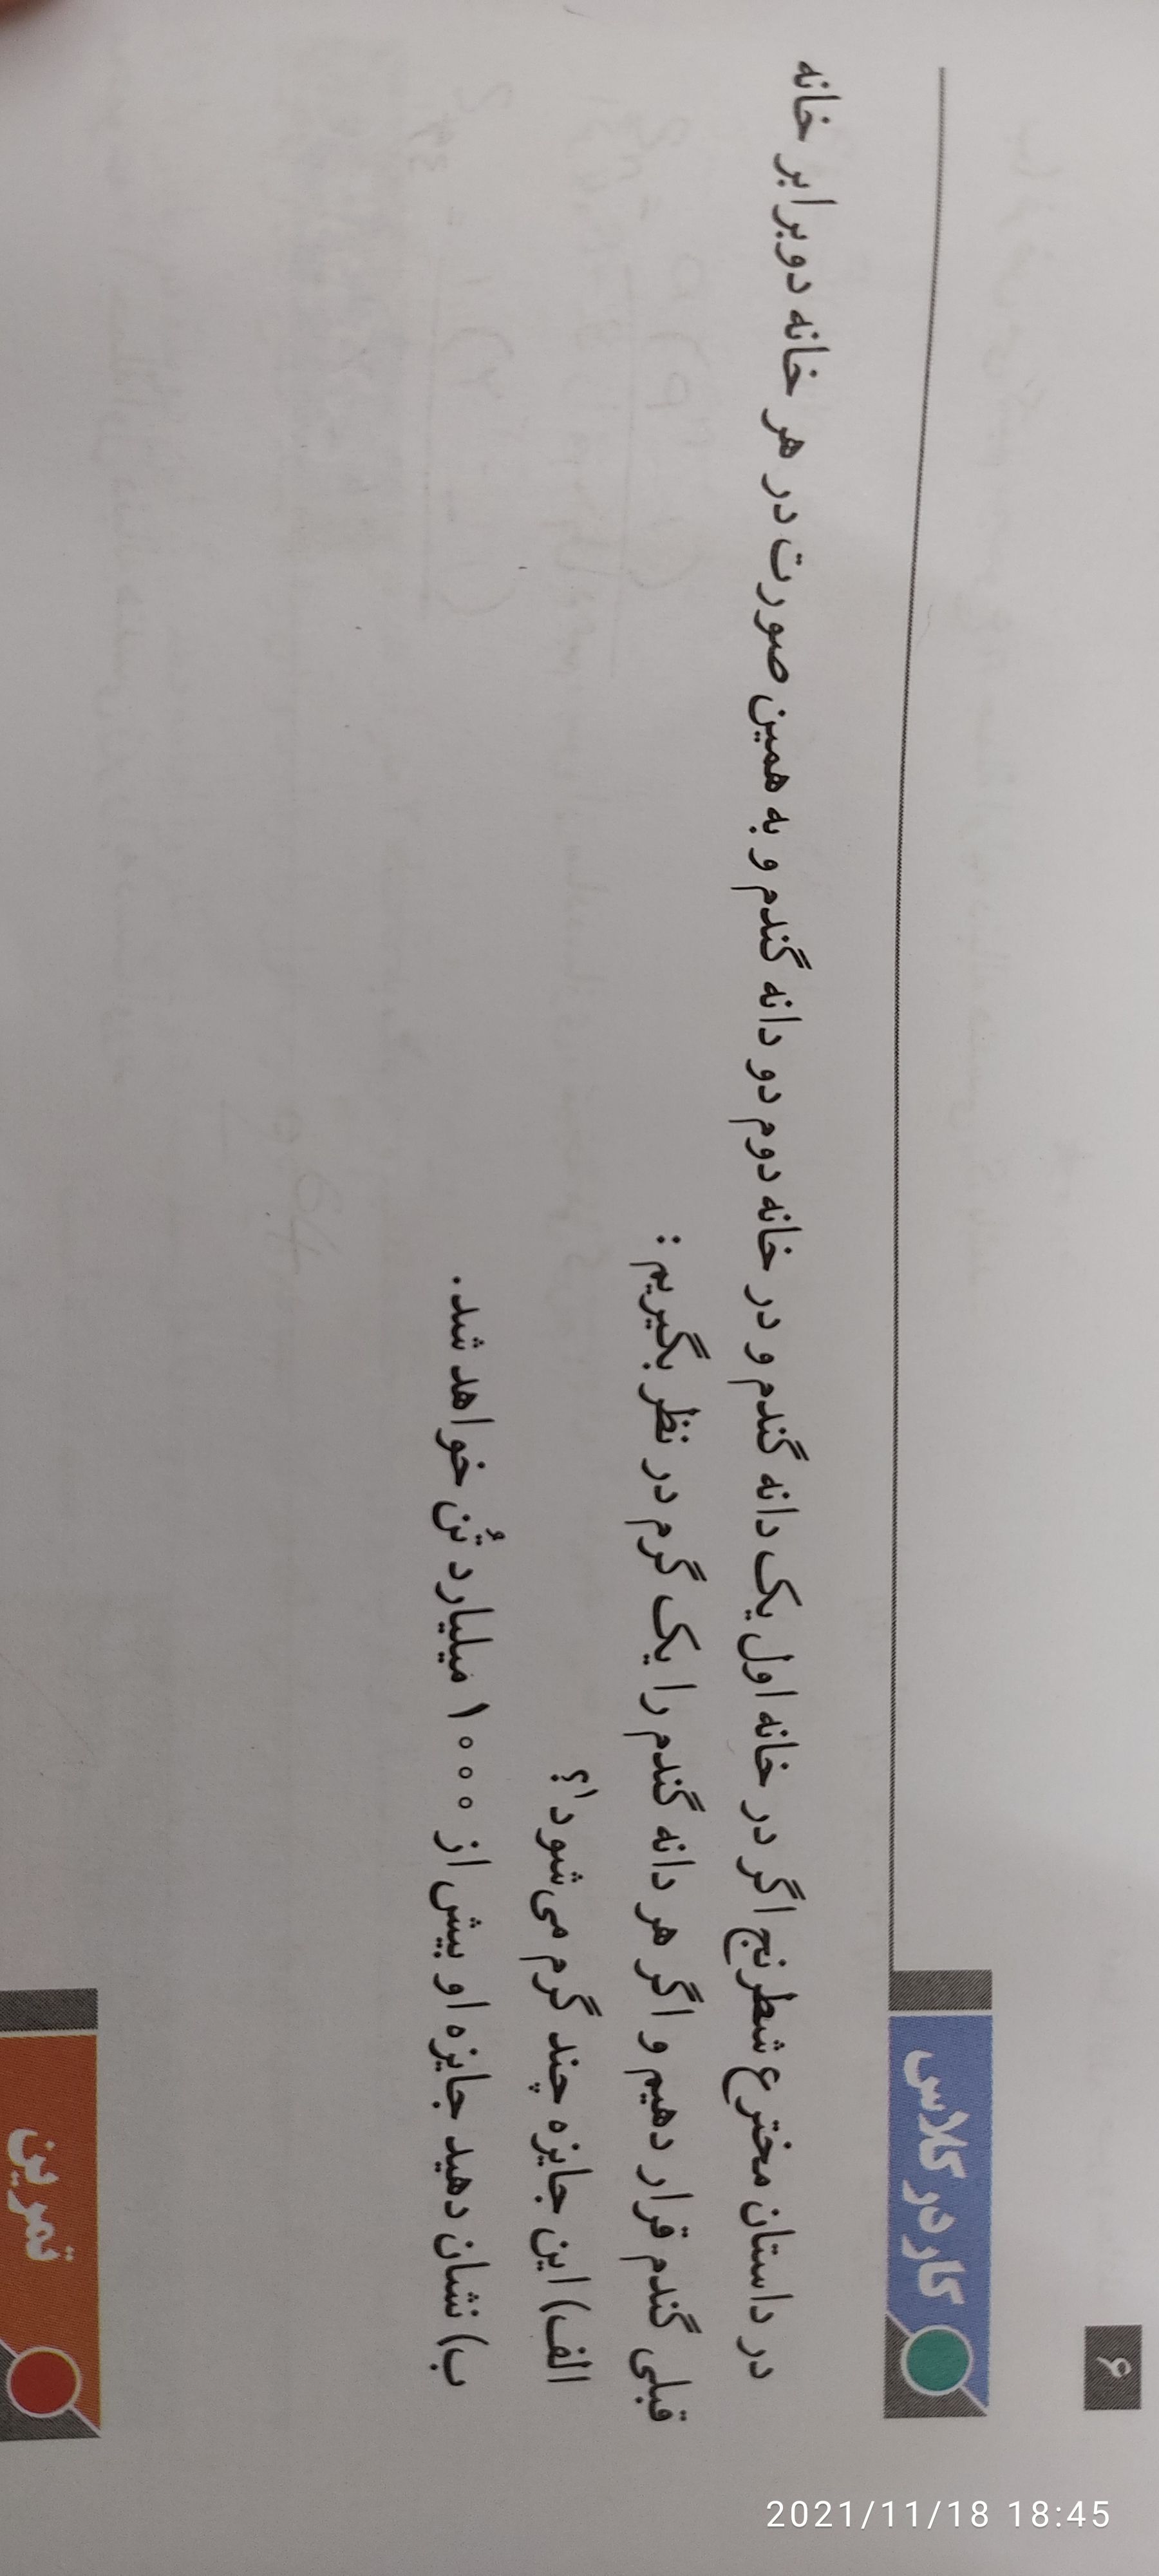 ۶
کار در کلاس
در داستان مخترع شطرنج اگر در خانه اول یک دانه گندم و در خانه دوم دو دانه گندم و به همین صورت در هر خانه دو برابر خانه
قبلی گندم قرار دهیم و اگر هر دانه گندم را یک گرم در نظر بگیریم :
الف) این جایزه چند گرم می‌شود۱؟
ب) نشان دهید جایزه او بیش از ۱۰۰۰ میلیارد تُن خواهد شد.
تمرین
2021/11/18 18:45